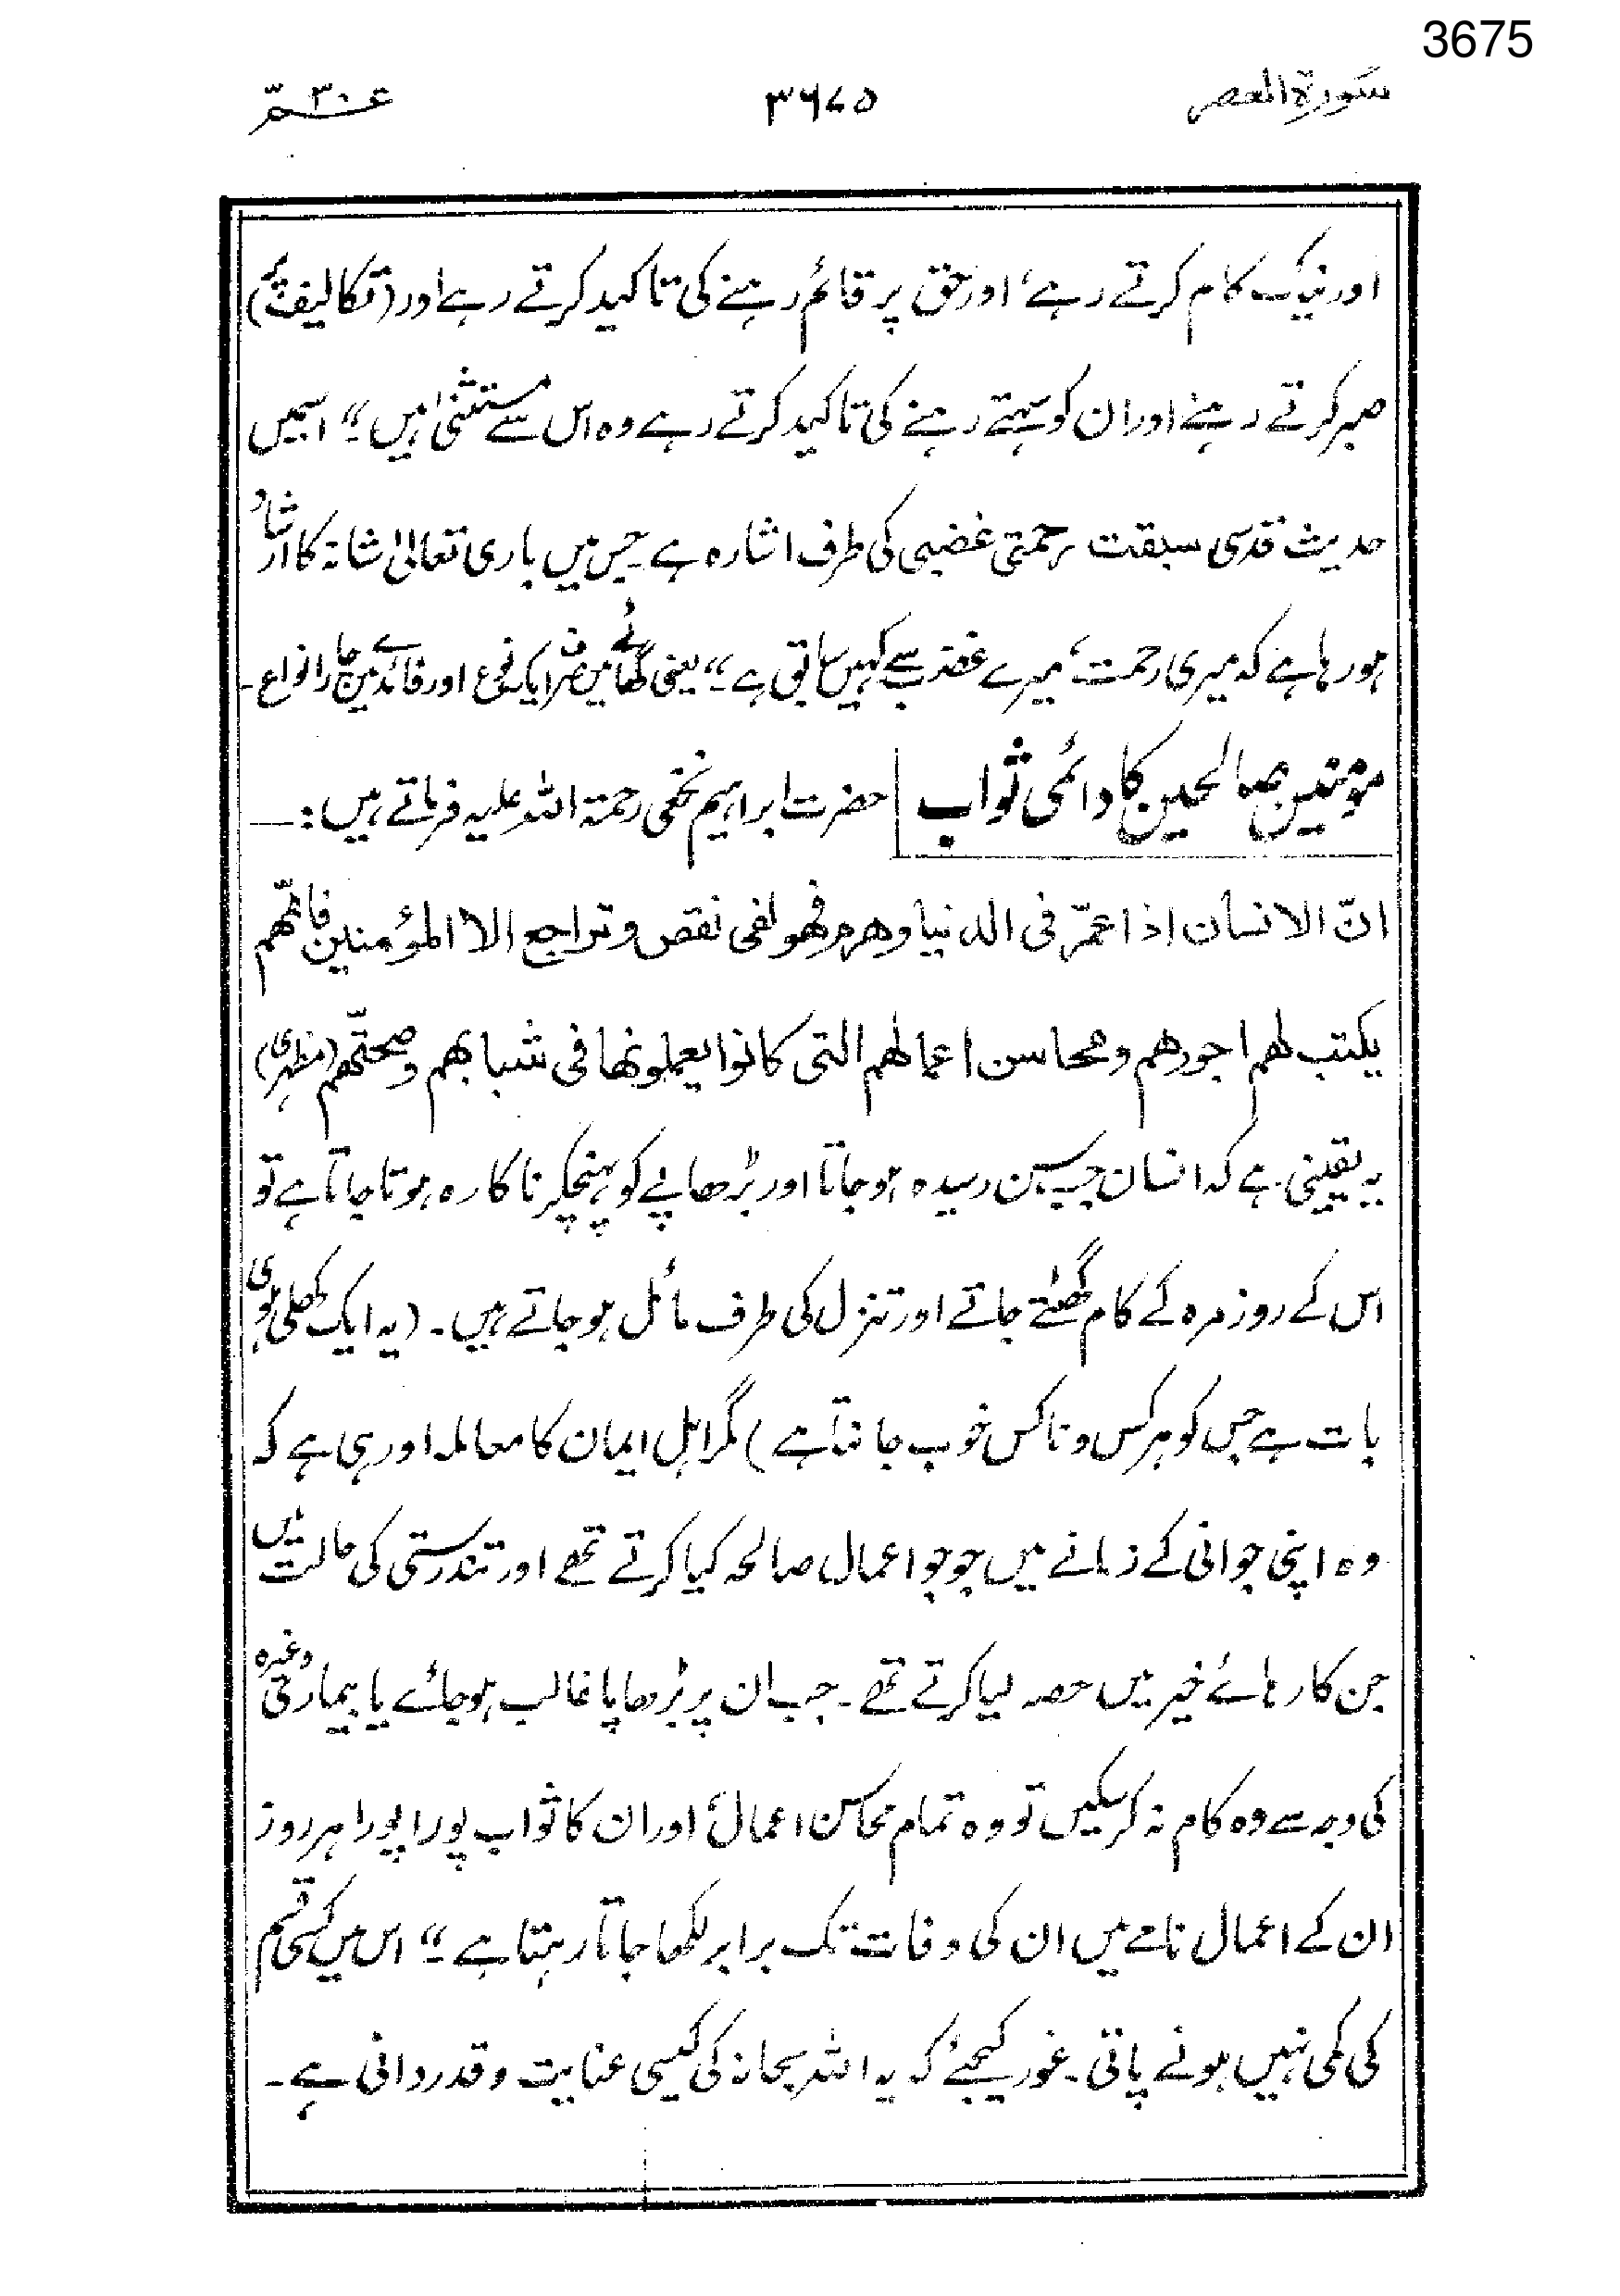 3675
سورة العصر ۳۶۷۵ عـم ۳۰
اور نیک کام کرتے رہے، اور حق پر قائم رہنے کی تاکید کرتے رہے اور (تکالیف پر)
صبر کرتے رہنے اور ان کو سہتے رہنے کی تاکید کرتے رہے وہ اس سے مستثنیٰ ہیں۔" اسمیں
حدیث قدسی سبقت رحمتی غضبی کی طرف اشارہ ہے جس میں باری تعالیٰ شانہ کا ارشاد
ہو رہا ہے کہ میری رحمت، میرے غضب سے کہیں سابق ہے۔" یعنی گھاٹے میں صرف ایک نوع اور فائدے میں چار انواع۔
مؤمنین صالحین کا دائمی ثواب حضرت ابراہیم نخعی رحمۃ اللہ علیہ فرماتے ہیں:۔
انّ الانسان اذا عمّر فی الدنیا وهرم فهو لفی نقص وتراجع الا المؤمنین فانّهم
یکتب لهم اجورهم ومحاسن اعمالهم التی کانوا یعملونها فی شبابهم وصحتّهم (مظہری)
یہ یقینی ہے کہ انسان جب سن رسیدہ ہوجاتا اور بڑھاپے کو پہنچکر ناکارہ ہوتا جاتا ہے تو
اس کے روزمرہ کے کام گھٹتے جاتے اور تنزل کی طرف مائل ہوجاتے ہیں۔ (یہ ایک کھلی ہوئی
بات ہے جس کو ہرکس وناکس خوب جانتا ہے) مگر اہل ایمان کا معاملہ اور ہی ہے کہ
وہ اپنی جوانی کے زمانے میں جو جو اعمال صالحہ کیا کرتے تھے اور تندرستی کی حالت میں
جن کارہائے خیر میں حصہ لیا کرتے تھے۔ جب ان پر بڑھاپا غالب ہوجائے یا بیماری وغیرہ
کی وجہ سے وہ کام نہ کرسکیں تو وہ تمام محاسن اعمال، اور ان کا ثواب پورا پورا ہر روز
ان کے اعمال نامے میں ان کی وفات تک برابر لکھا جاتا رہتا ہے۔" اس میں کسی قسم
کی کمی نہیں ہونے پاتی۔ غور کیجئے کہ یہ اللہ سبحانہ کی کیسی عنایت و قدردانی ہے۔